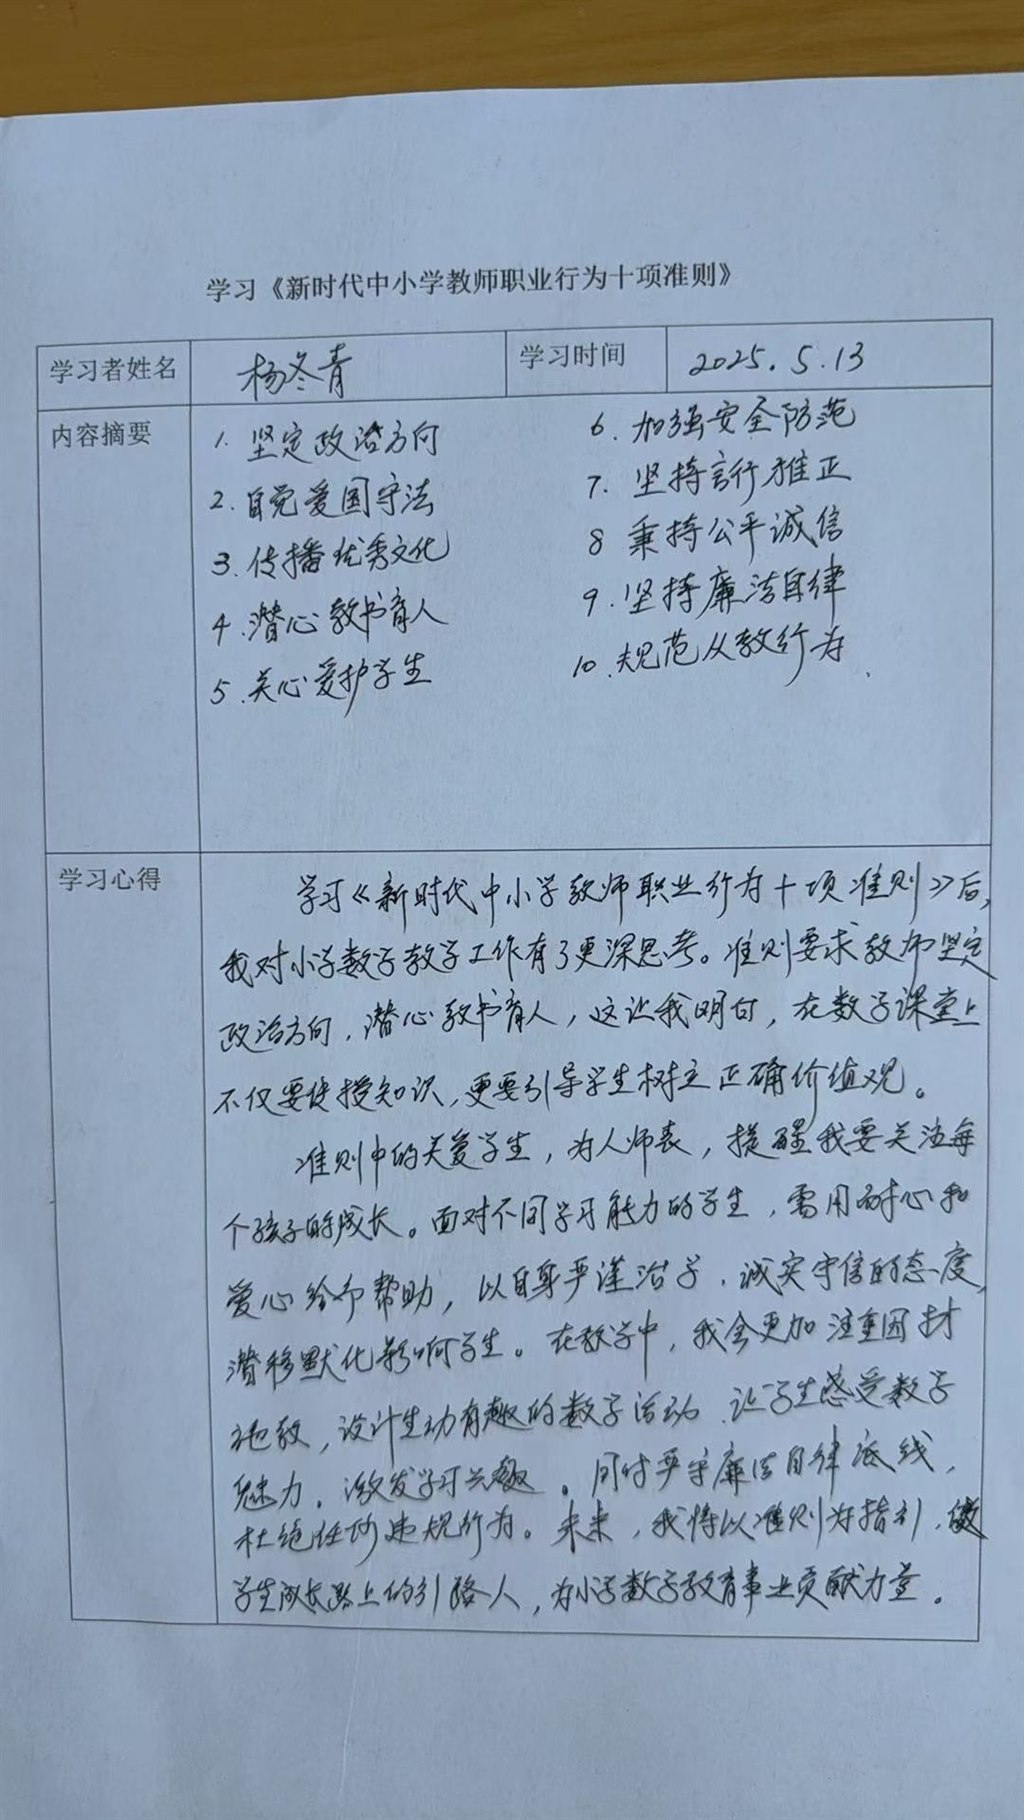 学习《新时代中小学教师职业行为十项准则》
学习者姓名 杨冬青 学习时间 2025.5.13
内容摘要
1. 坚定政治方向
2. 自觉爱国守法
3. 传播优秀文化
4. 潜心教书育人
5. 关心爱护学生
6. 加强安全防范
7. 坚持言行雅正
8 秉持公平诚信
9. 坚持廉洁自律
10. 规范从教行为.
学习心得
学习《新时代中小学教师职业行为十项准则》后,
我对小学数学教学工作有了更深思考。准则要求教师坚定
政治方向,潜心教书育人,这让我明白,在数学课堂上
不仅要传授知识,更要引导学生树立正确价值观。
准则中的关爱学生,为人师表,提醒我要关注每
个孩子的成长。面对不同学习能力的学生,需用耐心和
爱心给予帮助,以自身严谨治学、诚实守信的态度,
潜移默化影响学生。在教学中,我会更加注重因材
施教,设计生动有趣的数学活动,让学生感受数学
魅力,激发学习兴趣。同时严守廉洁自律底线,
杜绝任何违规行为。未来,我将以准则为指引,做
学生成长路上的引路人,为小学数学教育事业贡献力量。